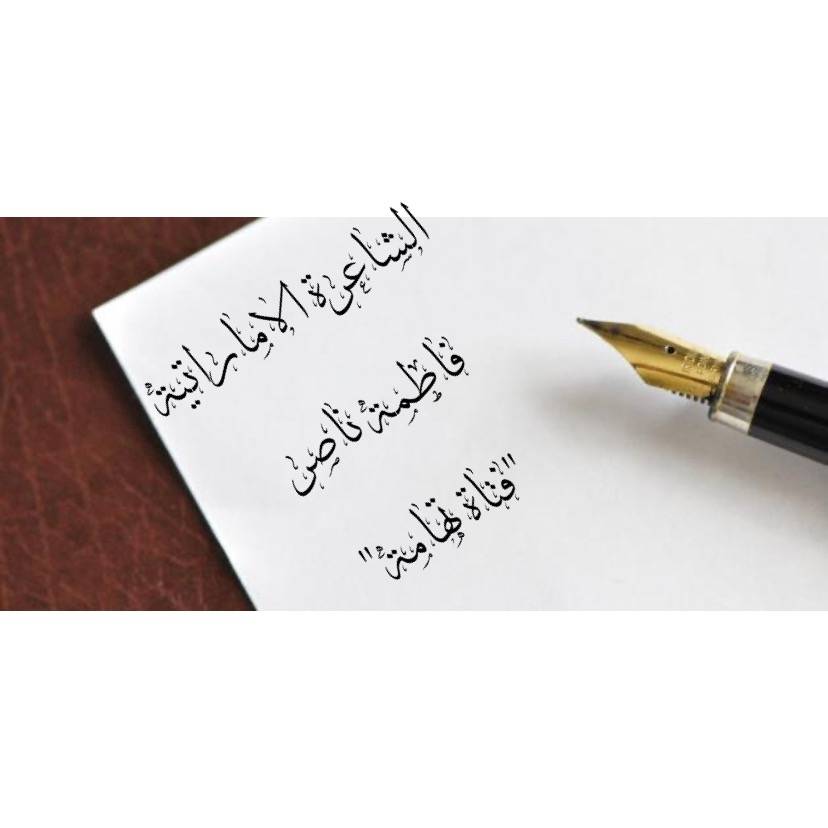 الشاعرة الاماراتية
فاطمة ناصر
"فتاة تهامة"